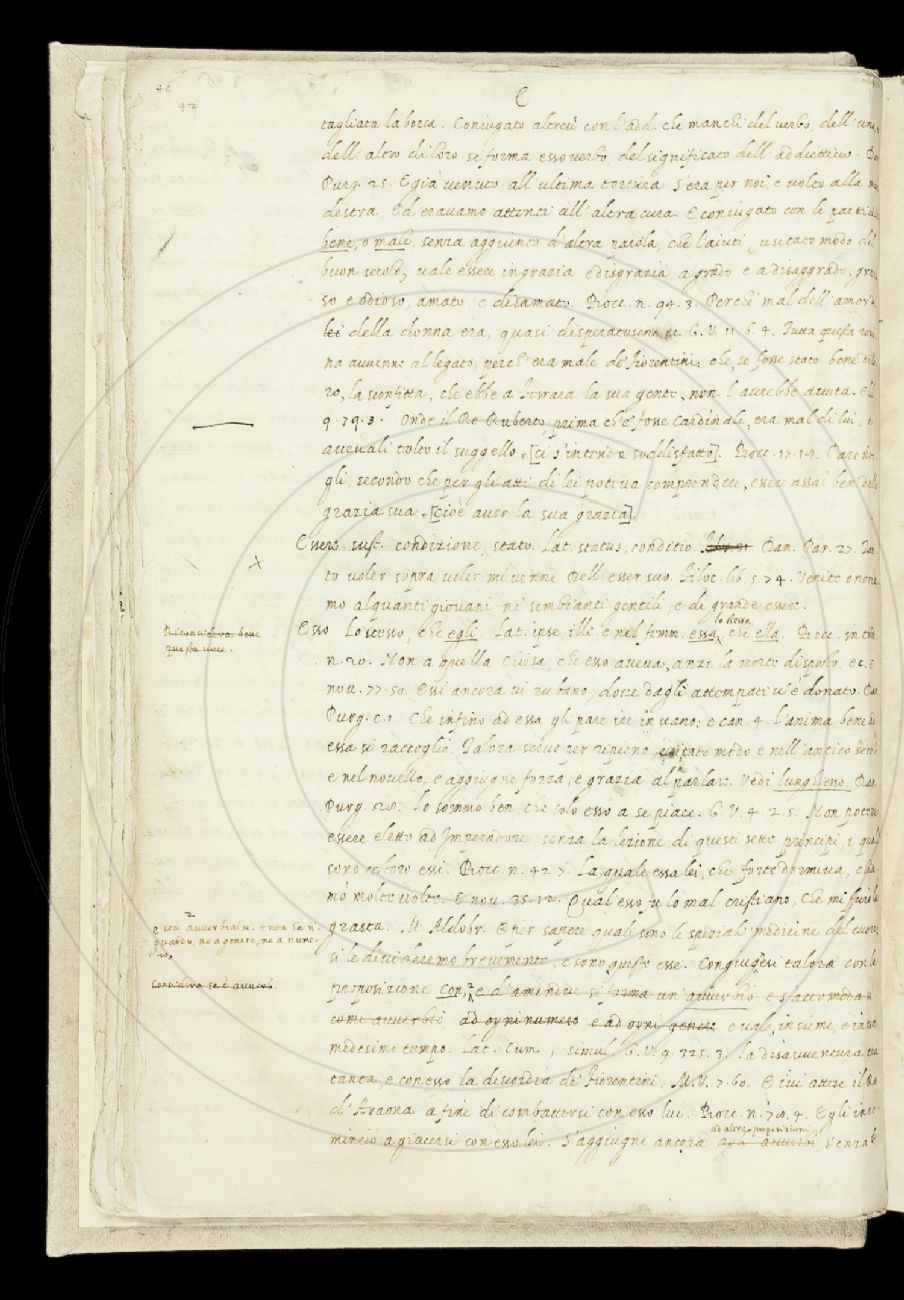 42
42
E
tagliata la borsa. Coniugato altresì con l'add. che manchi del verbo, dell'uno,
dell'altro di loro si forma esso verbo, del significato dell'addiettivo.
Purg. 25. E già venuto all'ultima tortura S'era per noi, e volto alla
destra, Ed eravamo attenti all'altra cura. E coniugato con le
bene, o male, senza aggiunto d'altra parola, che l'aiuti, usitato modo del
buon secolo, vale essere in grazia e disgrazia, a grado e a disaggrado,
so e odioso, amato, e disamato. Bocc. n. 94. 3. Perchè mal dell'amor
lei della donna era, quasi disperatosene, G. V. 11. 6. 4. Tutta questa
na avvenne al legato, perch' era male de' fiorentini, che, se fosse stato bene di
ro, la sconfitta, che ebbe a Ferrara la sua gente, non l'avrebbe avuta.
9. 79. 3. Onde il Re Ruberto, prima ch'e' fosse Cardinale, era mal di lui, e
avevali tolto il suggello. [ci s'intende soddisfatto]. Bocc. 17. 19. Parendo
gli, secondo che per gli atti di lei poteva comprendere, essere assai ben della
grazia sua. [cioè aver la sua grazia].
Essere sust. condizione, stato. Lat. status, conditio. Dan. Par. 27.
to voler sopra voler mi venne Dell'esser suo. Filoc. lib. 5. 74. Venite
mo alquanti giovani ne' sembianti gentili, e di grande essere.
Riconsidera bene
questa voce.
lo stesso
Esso Lo stesso, che egli. Lat. ipse, ille e nel femm. essa, che ella. Bocc.
n. 20. Non a quella Chiesa, che esso aveva, anzi la morte disposto, ec. E
nov. 77. 50. Essi ancora vi rubano, dove dagli attempati v'è donato.
Purg. c. 1. Che infino ad essa gli pare ire in vano; e can. 4. L'anima bene ad
essa si raccoglie. Talora serve per ripieno, usitato modo e nell'antico
e nel novello, e aggiugne forza, e grazia al parlare. Vedi lunghesso. Dan.
Purg. 28. Lo sommo ben, che solo esso a se piace. G. V. 4. 2. 5. Non
essere eletto ad Imperadore, senza la lezione di questi sette principi, i quali
sono costoro essi. Bocc. n. 42. 7. La quale essa lei, che forte dormiva, chia
mò molte volte. E nov. 35. 12. Qual esso fu lo mal cristiano, Che mi furò la
2
e sta avverbialm. e non ha ri
guardo, nè a genere, nè a nume-
ro,
grasta. M. Aldobr. E per sapere quali sono le speziali medicine del cuore
si le diviseremo brevemente, e sono queste esse. Congiugnesi talora con la
Considera se è avverb.
preposizione con, e d'amendue si forma un avverbio, e s'accomoda
come avverbio ad ogni numero e ad ogni genere e vale, insieme, e in un
medesimo tempo. Lat. Cum, simul. G. V. 9. 325. 3. La disavventura
tanta, e con esso la discordia de' Fiorentini. M. V. 7. 60. E ivi attese il Re
d'Araona a fine di combattersi con esso lui. Bocc. n. 4. Egli inco-
ad altre preposizioni
minciò a giacersi con esso lei. S'aggiugne ancora agli avverbi, senza